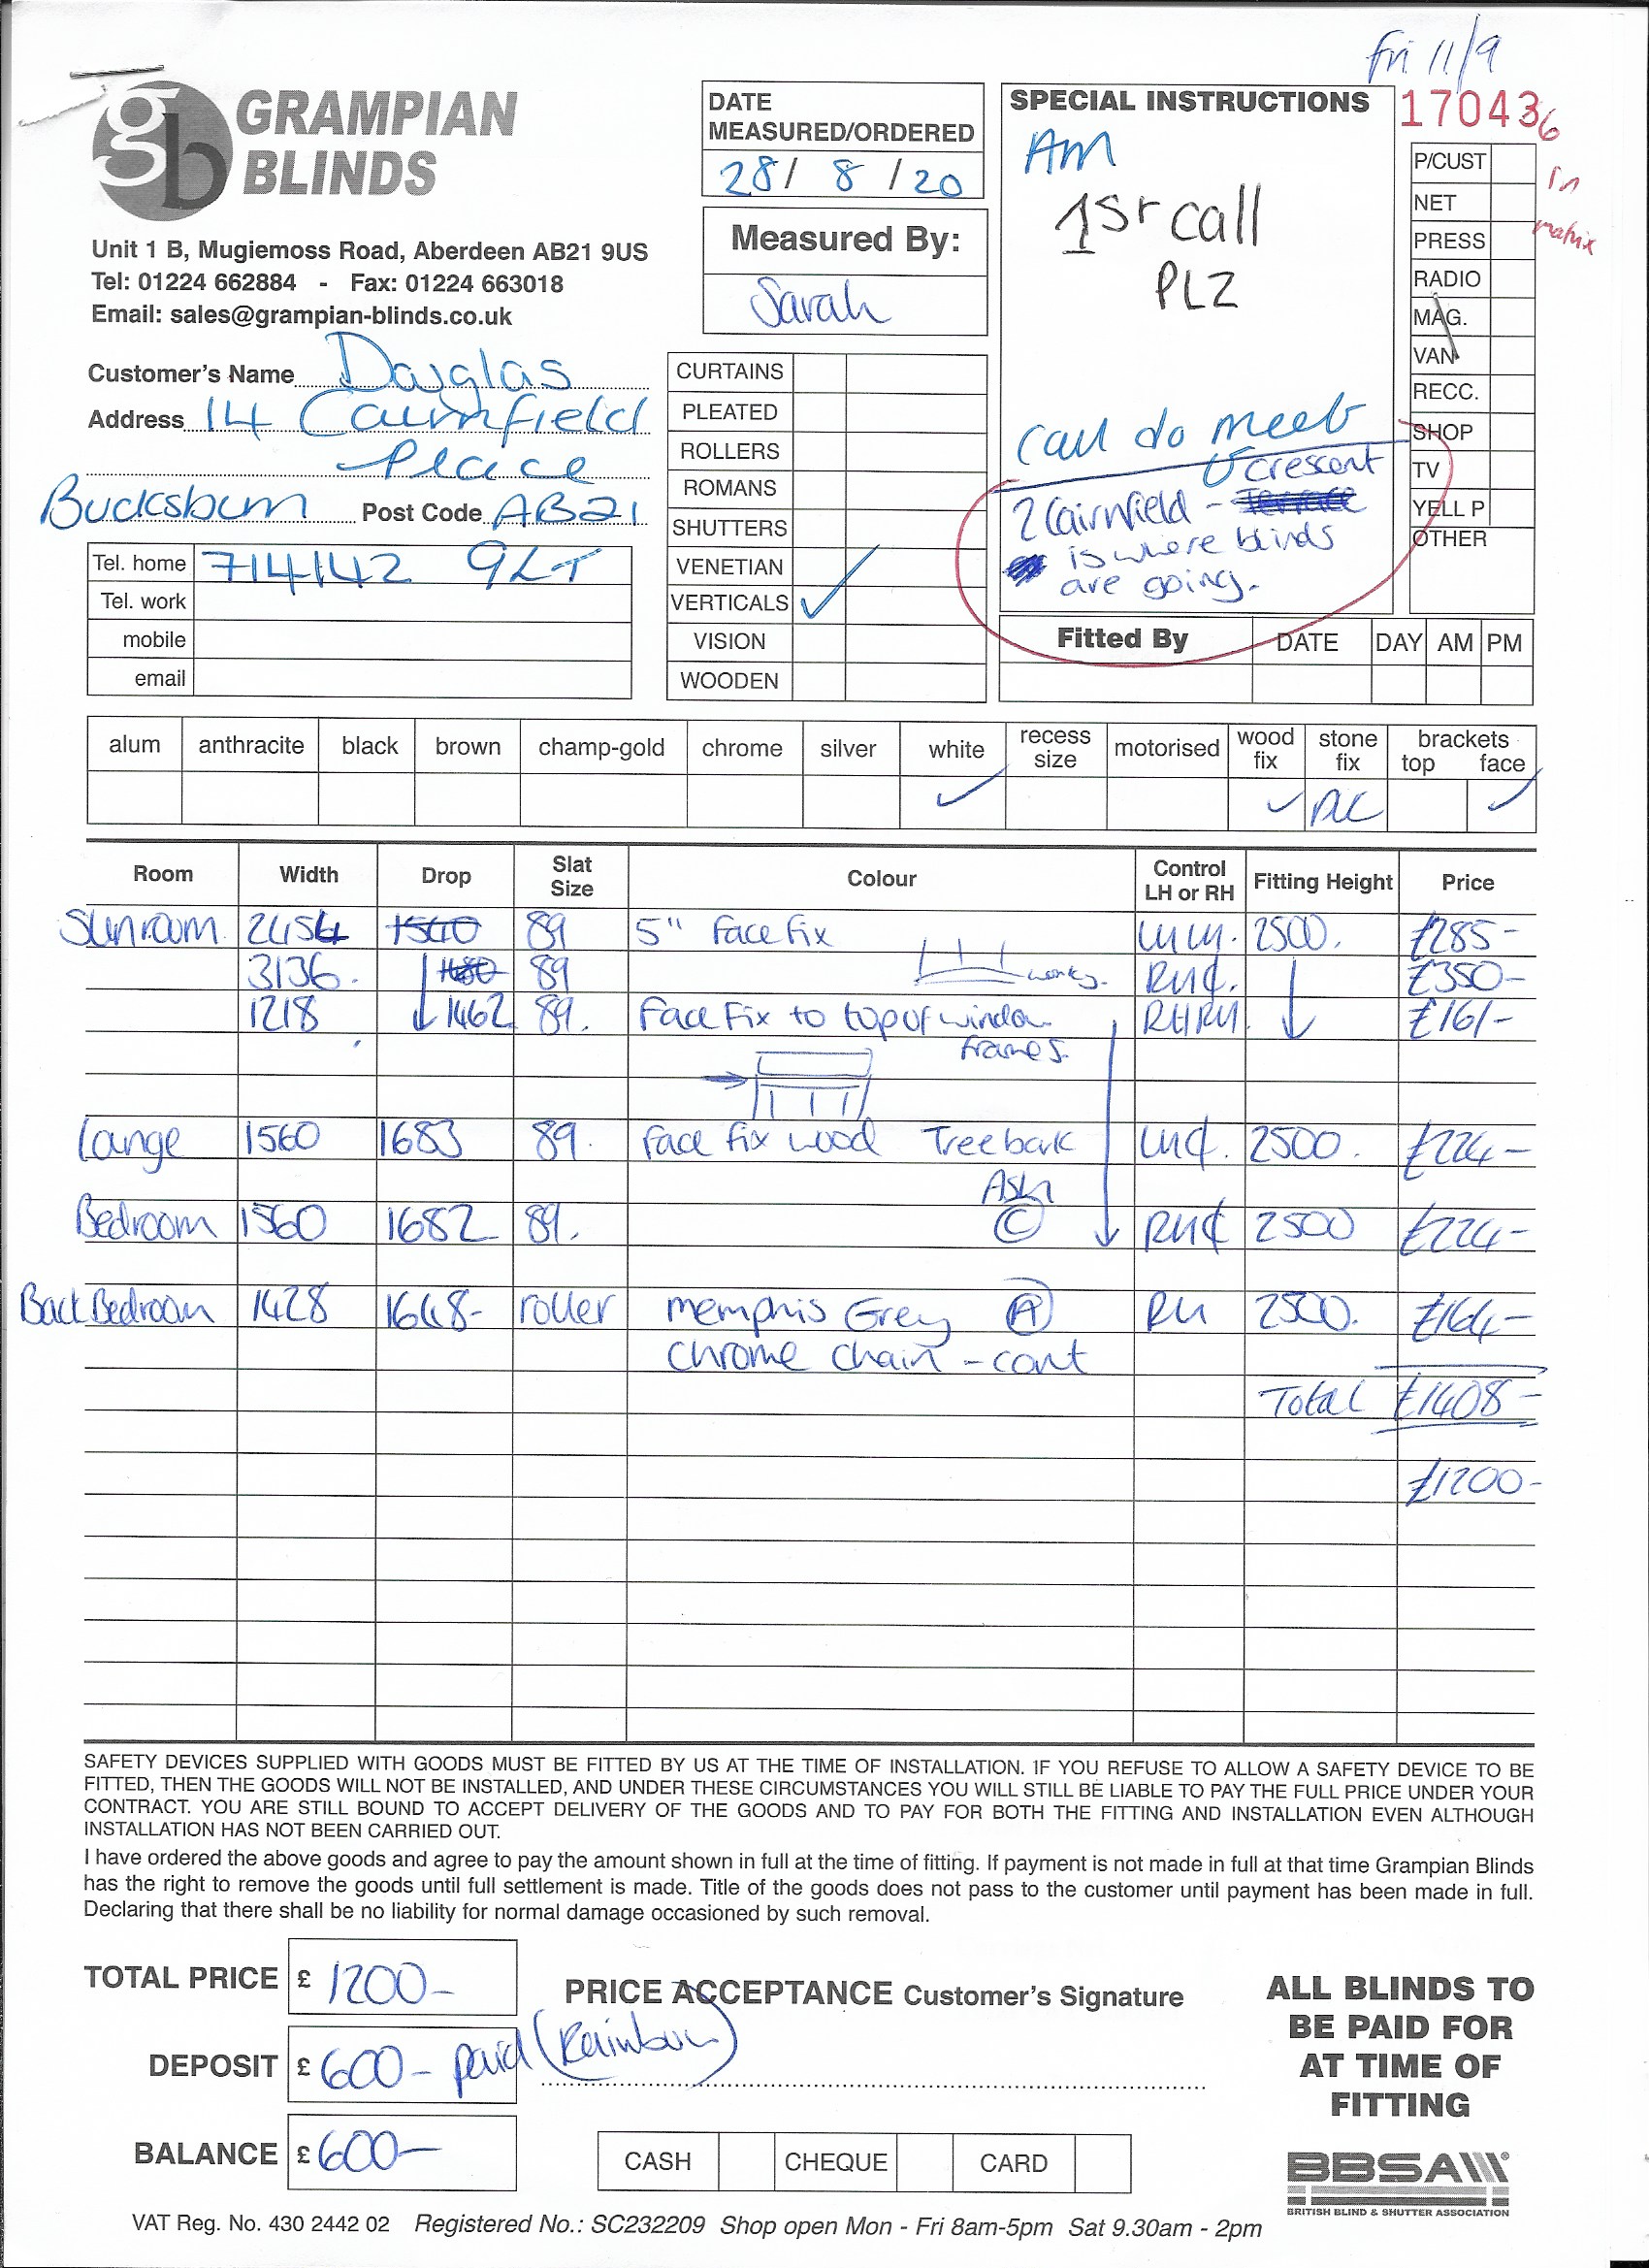 Fri 11/9
GRAMPIAN
BLINDS
Unit 1 B, Mugiemoss Road, Aberdeen AB21 9US
Tel: 01224 662884 - Fax: 01224 663018
Email: sales@grampian-blinds.co.uk
DATE
MEASURED/ORDERED
28/ 8 /20
Measured By:
Sarah
SPECIAL INSTRUCTIONS
AM
1st call
PLZ
call do meet
2 Cairnfield - Crescent
is where blinds
are going.
170436
in
matrix
P/CUST
NET
PRESS
RADIO
MAG.
VAN
RECC.
SHOP
TV
YELL P
OTHER
Customer's Name Douglas
Address 14 Cairnfield
Place
Bucksburn Post Code AB21
Tel. home 714142 9LT
Tel. work
mobile
email
CURTAINS
PLEATED
ROLLERS
ROMANS
SHUTTERS
VENETIAN
VERTICALS ✓
VISION
WOODEN
Fitted By DATE DAY AM PM
alum anthracite black brown champ-gold chrome silver white recess size motorised wood fix stone fix brackets top face
✓ ✓ ✓
Room Width Drop Slat Size Colour Control LH or RH Fitting Height Price
Sunroom 2454 1500 89 5" Face Fix 2500. £285-
3136. 89 works. RH¢. £350-
1218 1462 89. Face Fix to top of window RHRH £161-
frames.
Lounge 1560 1683 89. Face fix wood Treebark LH¢. 2500. £224-
Ash
Bedroom 1560 1682 89. © RH¢ 2500 £224-
Back Bedroom 1428 1648- roller Memphis Grey (A) RH 2500. £164-
chrome chain - cont
Total £1408-
£1200-
SAFETY DEVICES SUPPLIED WITH GOODS MUST BE FITTED BY US AT THE TIME OF INSTALLATION. IF YOU REFUSE TO ALLOW A SAFETY DEVICE TO BE
FITTED, THEN THE GOODS WILL NOT BE INSTALLED, AND UNDER THESE CIRCUMSTANCES YOU WILL STILL BE LIABLE TO PAY THE FULL PRICE UNDER YOUR
CONTRACT. YOU ARE STILL BOUND TO ACCEPT DELIVERY OF THE GOODS AND TO PAY FOR BOTH THE FITTING AND INSTALLATION EVEN ALTHOUGH
INSTALLATION HAS NOT BEEN CARRIED OUT.
I have ordered the above goods and agree to pay the amount shown in full at the time of fitting. If payment is not made in full at that time Grampian Blinds
has the right to remove the goods until full settlement is made. Title of the goods does not pass to the customer until payment has been made in full.
Declaring that there shall be no liability for normal damage occasioned by such removal.
TOTAL PRICE £ 1200-
PRICE ACCEPTANCE Customer's Signature
DEPOSIT £ 600- paid (Rainbow)
BALANCE £ 600-
CASH CHEQUE CARD
ALL BLINDS TO
BE PAID FOR
AT TIME OF
FITTING
BBSA
BRITISH BLIND & SHUTTER ASSOCIATION
VAT Reg. No. 430 2442 02 Registered No.: SC232209 Shop open Mon - Fri 8am-5pm Sat 9.30am - 2pm